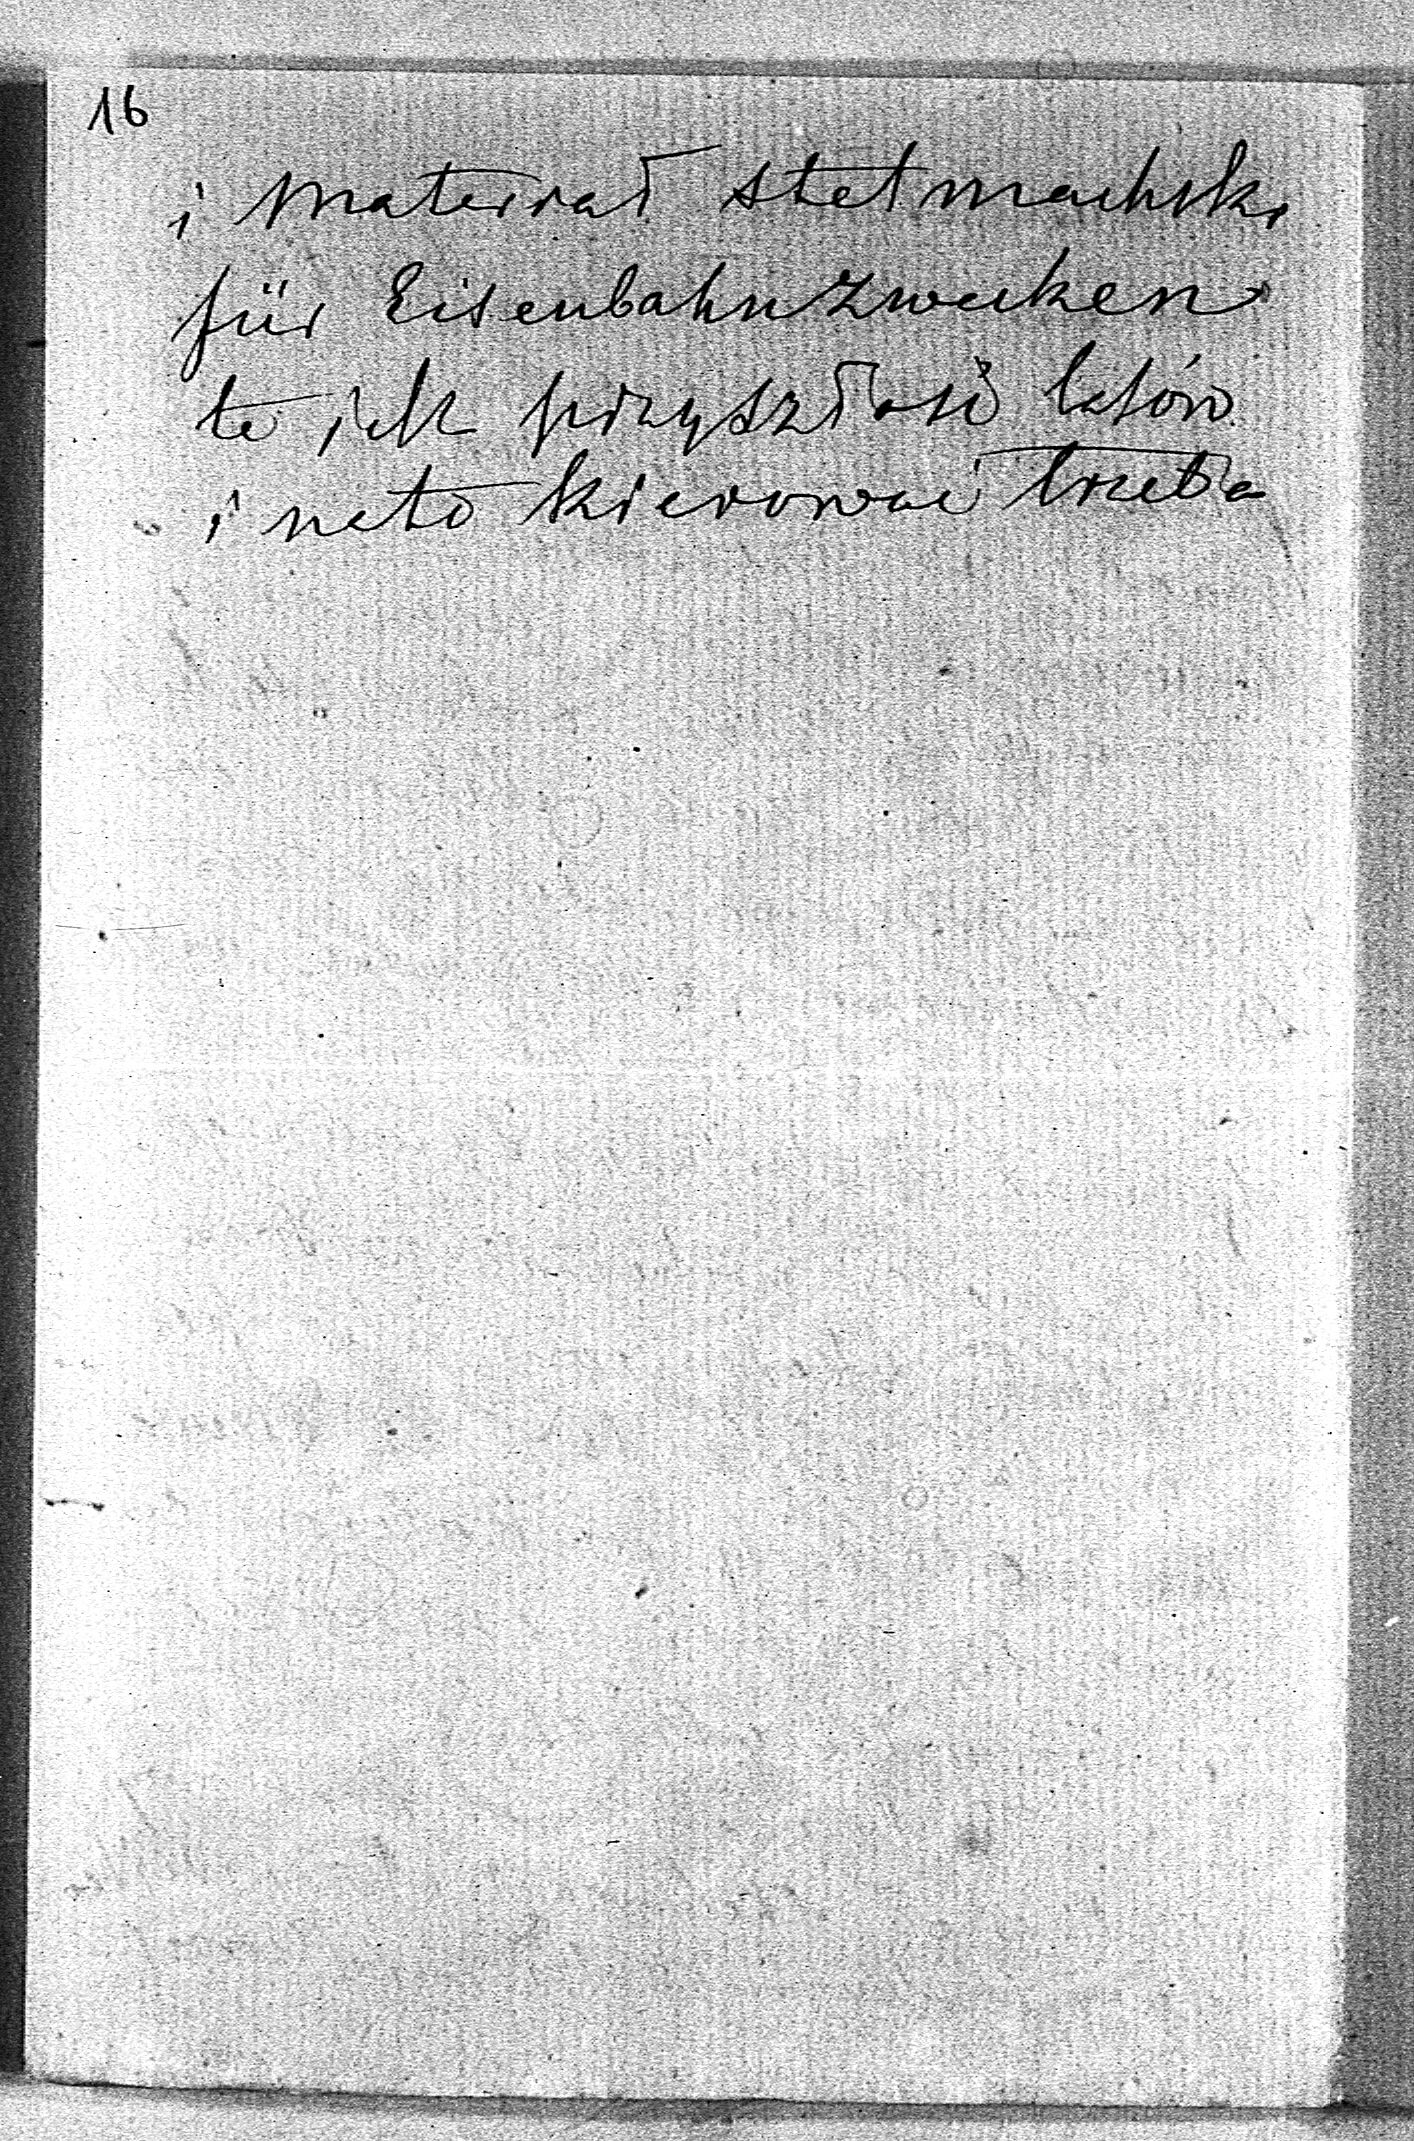 16
i materiał stelmachski
für Eisenbahnzwecken
to jest przyszłość lasów
i na to kierować trzeba